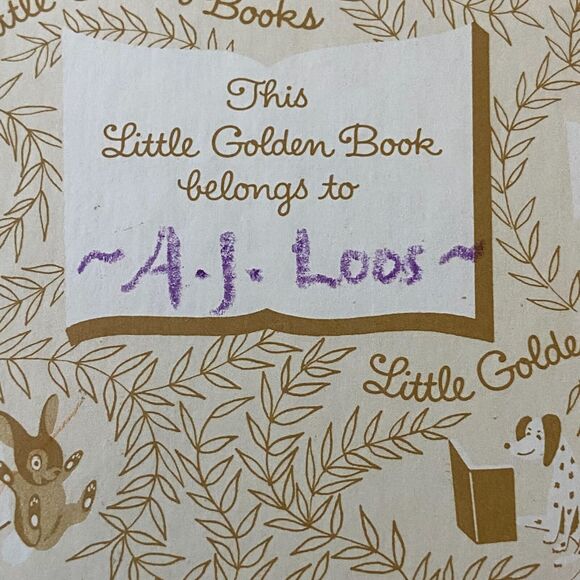 Little Golden Books
This
Little Golden Book
belongs to
~A.J. Loos~
Little Golde